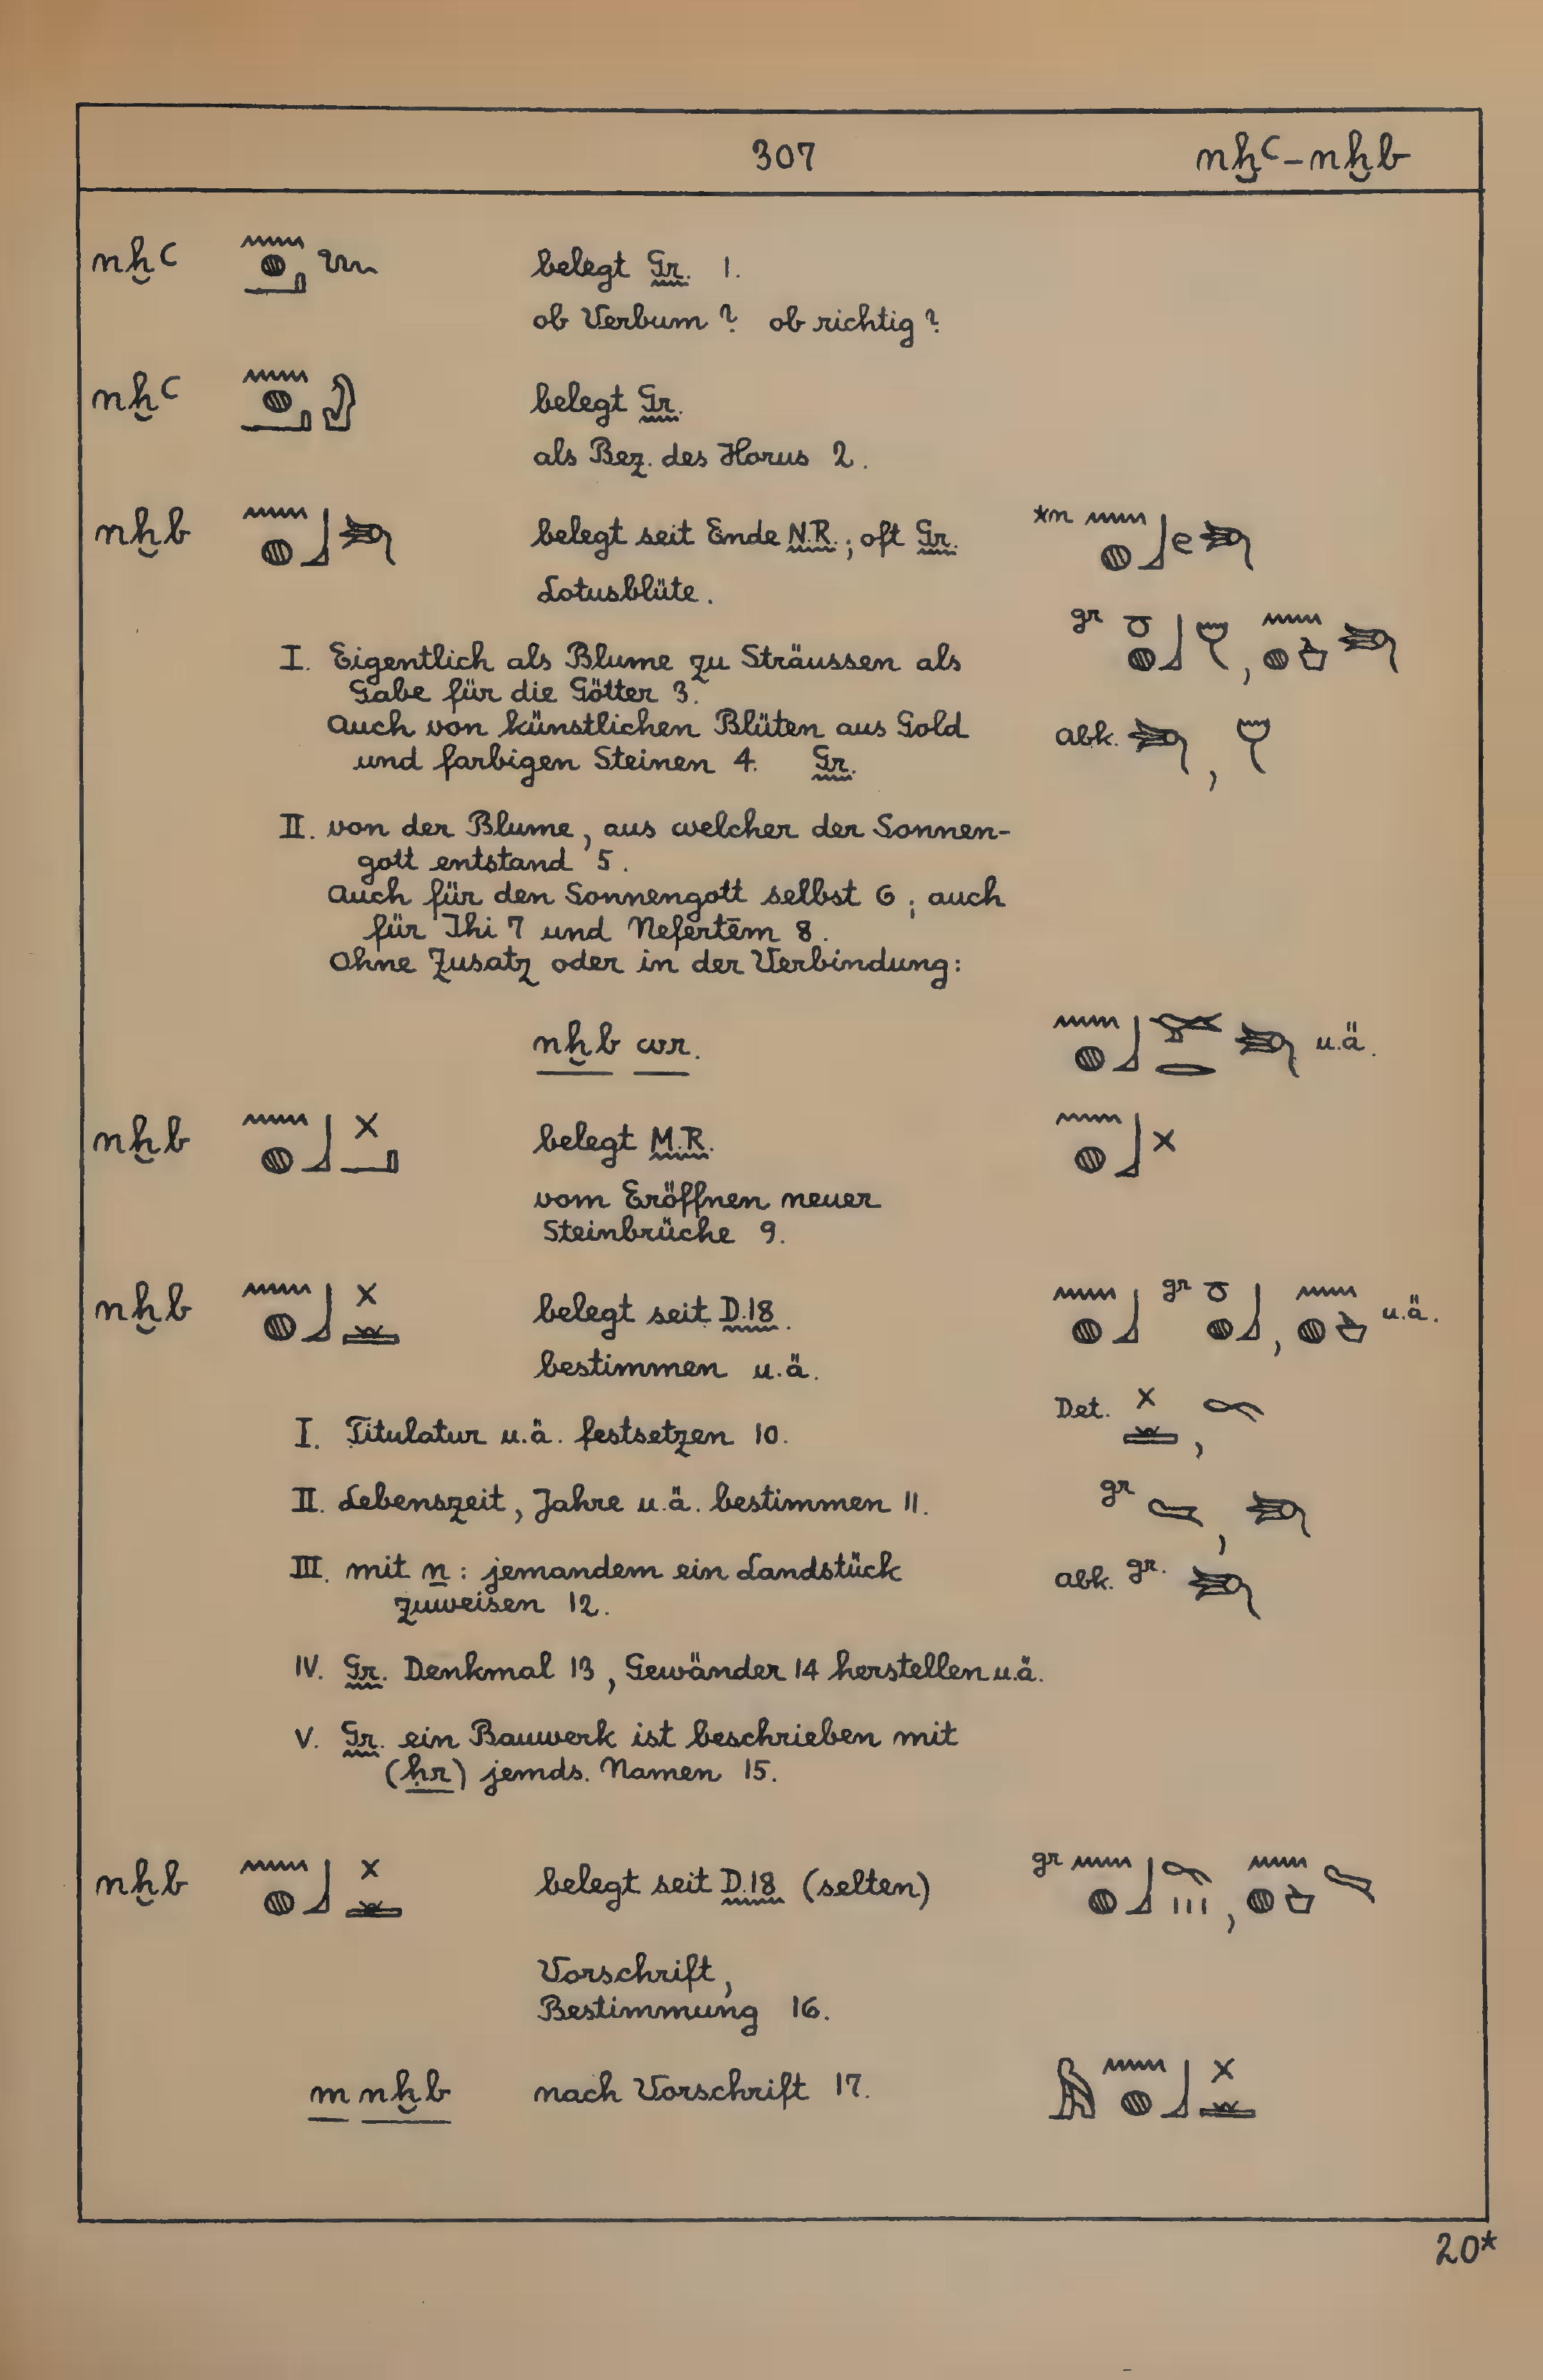 307 nḫꜥ - nḫb
nḫꜥ belegt Gr. 1.
ob Verbum? ob richtig?
nḫꜥ belegt Gr.
als Bez. des Horus 2.
nḫb belegt seit Ende N.R.; oft Gr. *m
Lotusblüte.
gr ,
I. Eigentlich als Blume zu Sträussen als
Gabe für die Götter 3.
Auch von künstlichen Blüten aus Gold
und farbigen Steinen 4. Gr.
abk. ,
II. von der Blume, aus welcher der Sonnen-
gott entstand 5.
Auch für den Sonnengott selbst 6; auch
für Ihi 7 und Nefertēm 8.
Ohne Zusatz oder in der Verbindung:
nḫb wr. u.ä.
nḫb belegt M.R.
vom Eröffnen neuer
Steinbrüche 9.
nḫb belegt seit D.18. gr , u.ä.
bestimmen u.ä.
Det. ,
I. Titulatur u.ä. festsetzen 10.
II. Lebenszeit, Jahre u.ä. bestimmen 11. gr ,
III. mit n: jemandem ein Landstück abk. gr.
zuweisen 12.
IV. Gr. Denkmal 13, Gewänder 14 herstellen u.ä.
V. Gr. ein Bauwerk ist beschrieben mit
(ḥr) jemds. Namen 15.
nḫb belegt seit D.18 (selten) gr ,
Vorschrift,
Bestimmung 16.
m nḫb nach Vorschrift 17.
20*